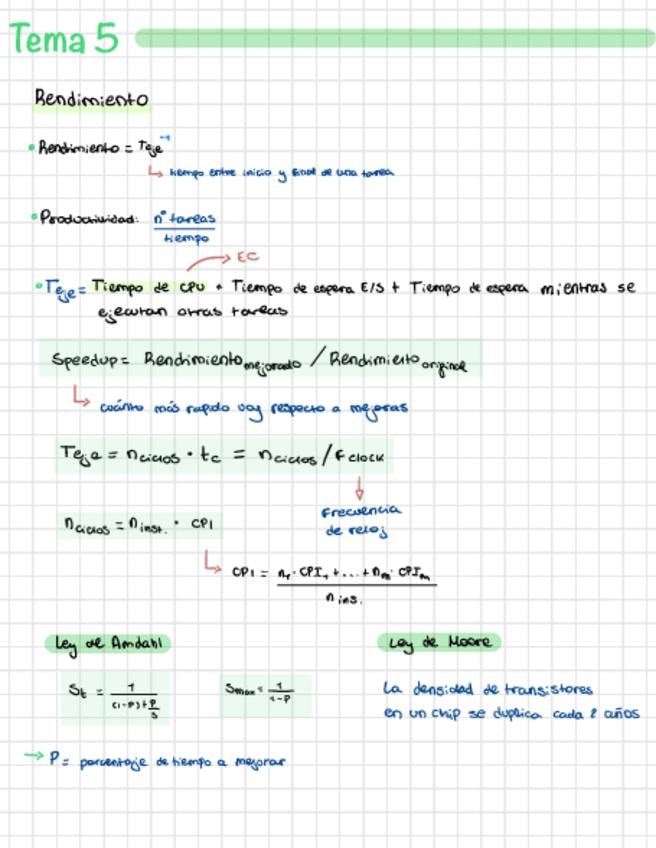 Tema 5
Rendimiento
• Rendimiento = Teje⁻¹
↳ tiempo entre inicio y final de una tarea
• Productividad: nº tareas / tiempo
→ EC
• Teje = Tiempo de CPU + Tiempo de espera E/S + Tiempo de espera mientras se
ejecutan otras tareas
Speedup = Rendimiento mejorado / Rendimiento original
↳ cuánto más rapido voy respecto a mejoras
Teje = nciclos · tc = nciclos / Fclock
Frecuencia
de reloj
nciclos = ninst. · CPI
↳ CPI = n₁·CPI₁ + ... + nm·CPIm / nins.
Ley de Amdahl
Ley de Moore
St = 1 / (1-P)+P/S
Smax = 1 / 1-P
La densidad de transistores
en un chip se duplica cada 2 años
→ P = porcentaje de tiempo a mejorar